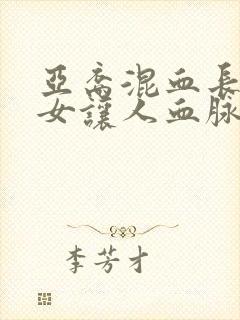 亞裔混血長
女讓人血脉
李芳才